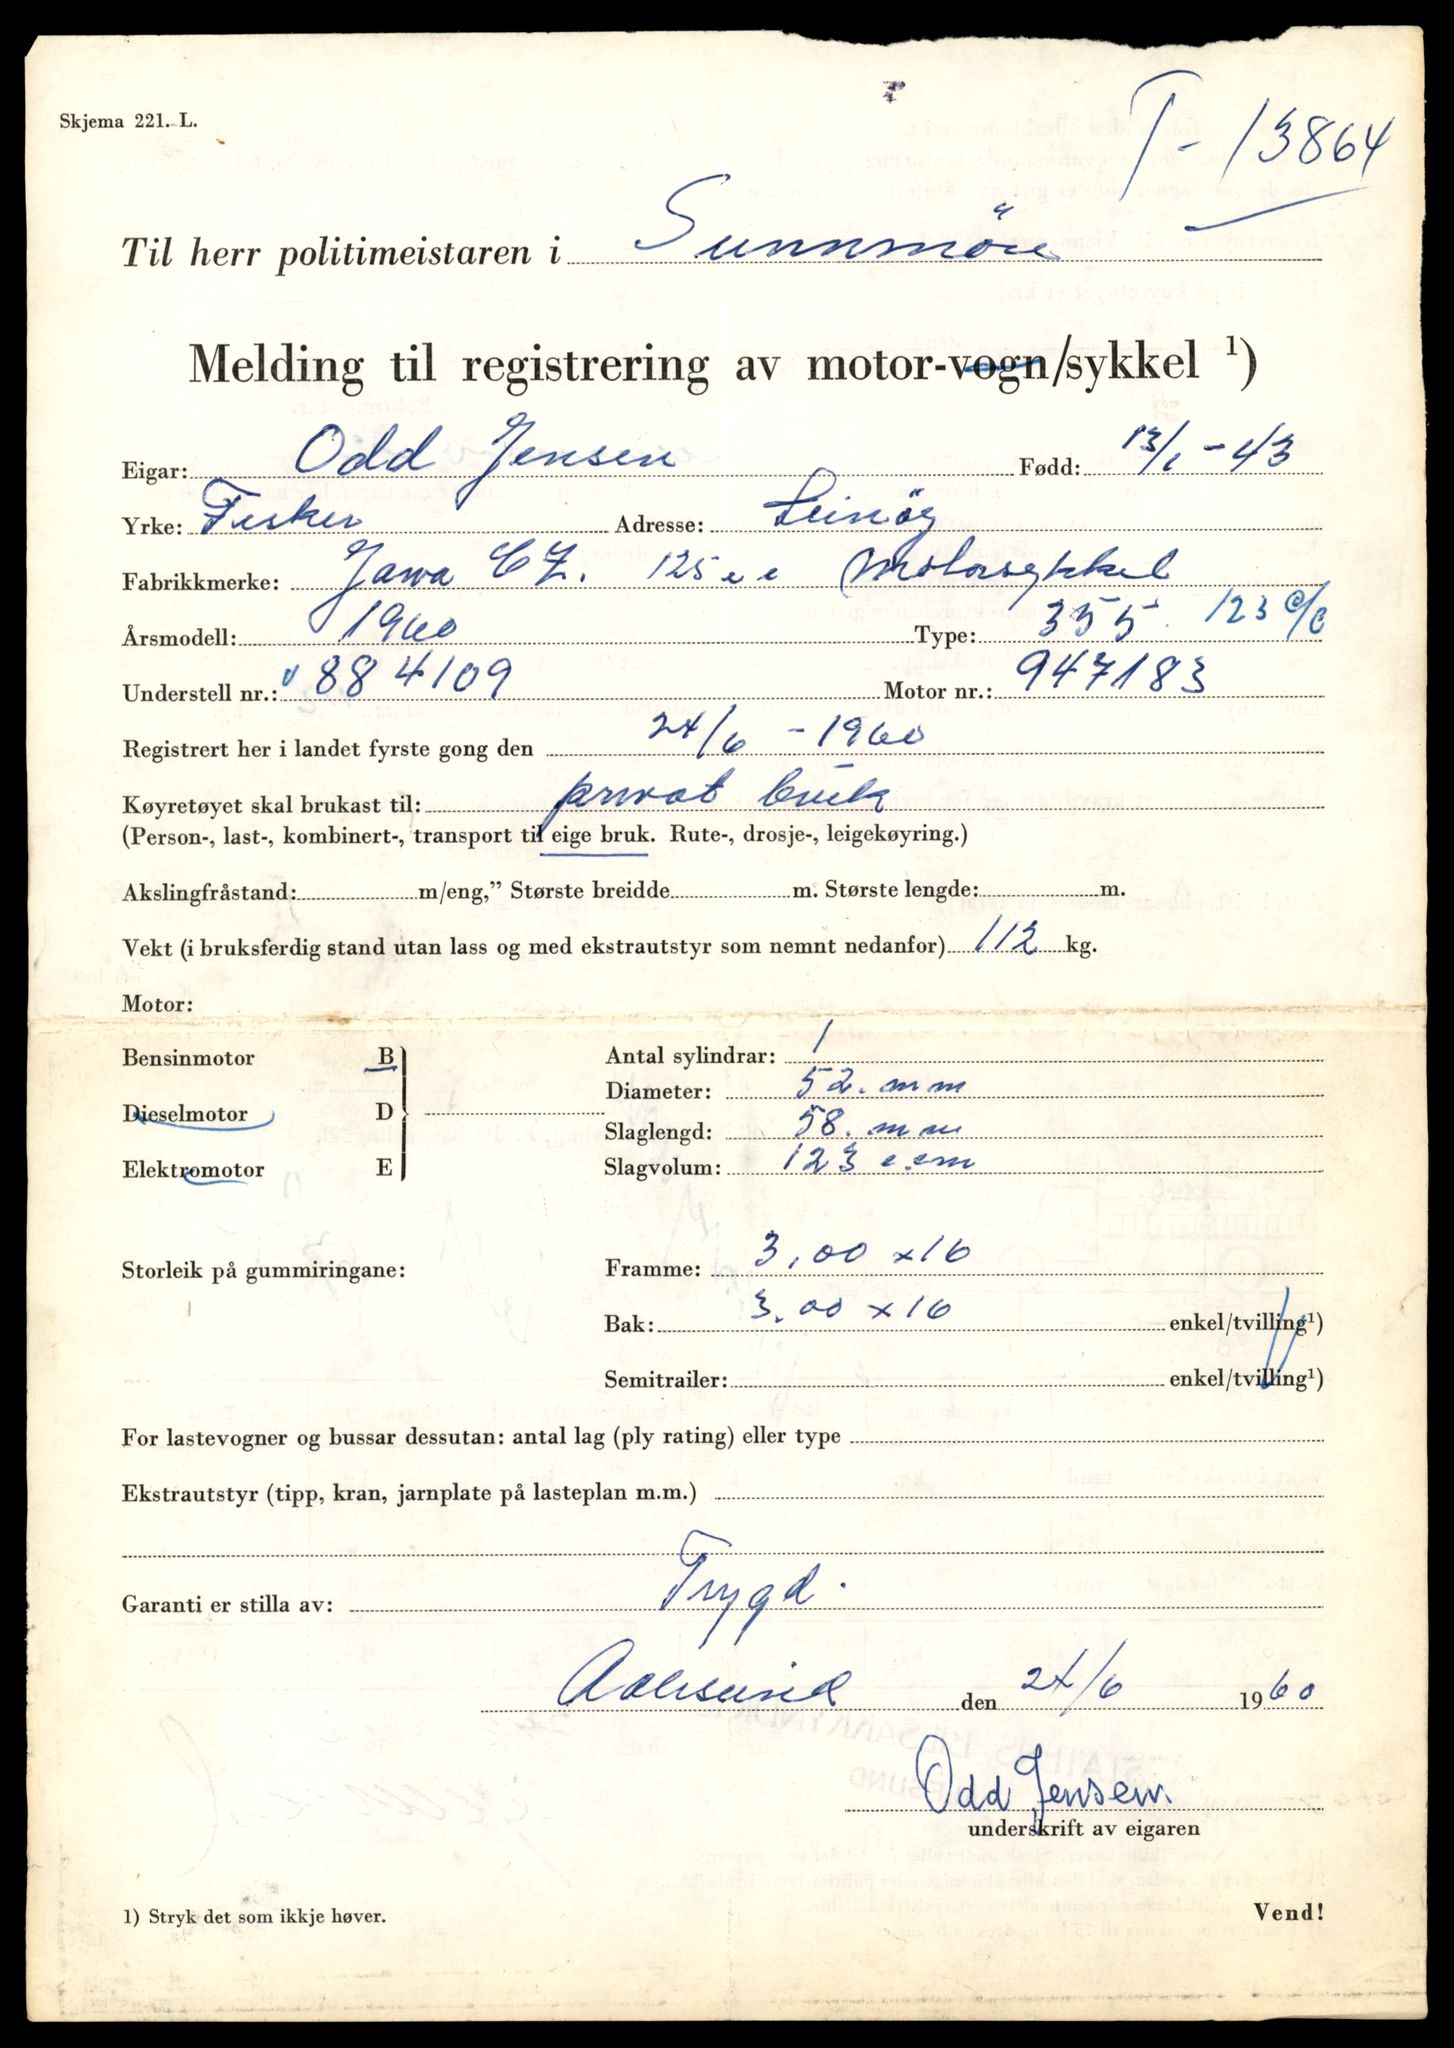 Skjema 221. L.
T-13864
Til herr politimeistaren i Sunnmöre
Melding til registrering av motor-vogn/sykkel ¹)
Eigar: Odd Jensen Fødd: 13/1-43
Yrke: Fisker Adresse: Leinöy
Fabrikkmerke: Jawa CZ. 125 cc Motorsykkel
Årsmodell: 1960 Type: 355 123 c/c
Understell nr.: 884109 Motor nr.: 947183
Registrert her i landet fyrste gong den 24/6 - 1960
Køyretøyet skal brukast til: privat bruk
(Person-, last-, kombinert-, transport til eige bruk. Rute-, drosje-, leigekøyring.)
Akslingfråstand: m/eng,” Største breidde m. Største lengde: m.
Vekt (i bruksferdig stand utan lass og med ekstrautstyr som nemnt nedanfor) 112 kg.
Motor:
Bensinmotor B Antal sylindrar: 1
Diameter: 52. mm
Dieselmotor D
Slaglengd: 58. mm
Elektromotor E Slagvolum: 123 c.cm
Storleik på gummiringane: Framme: 3,00 x 16
Bak: 3.00 x 16 enkel/tvilling¹)
Semitrailer: enkel/tvilling¹)
For lastevogner og bussar dessutan: antal lag (ply rating) eller type
Ekstrautstyr (tipp, kran, jarnplate på lasteplan m.m.)
Garanti er stilla av: Trygd.
Aalesund den 24/6 1960
Odd Jensen
underskrift av eigaren
1) Stryk det som ikkje høver. Vend!